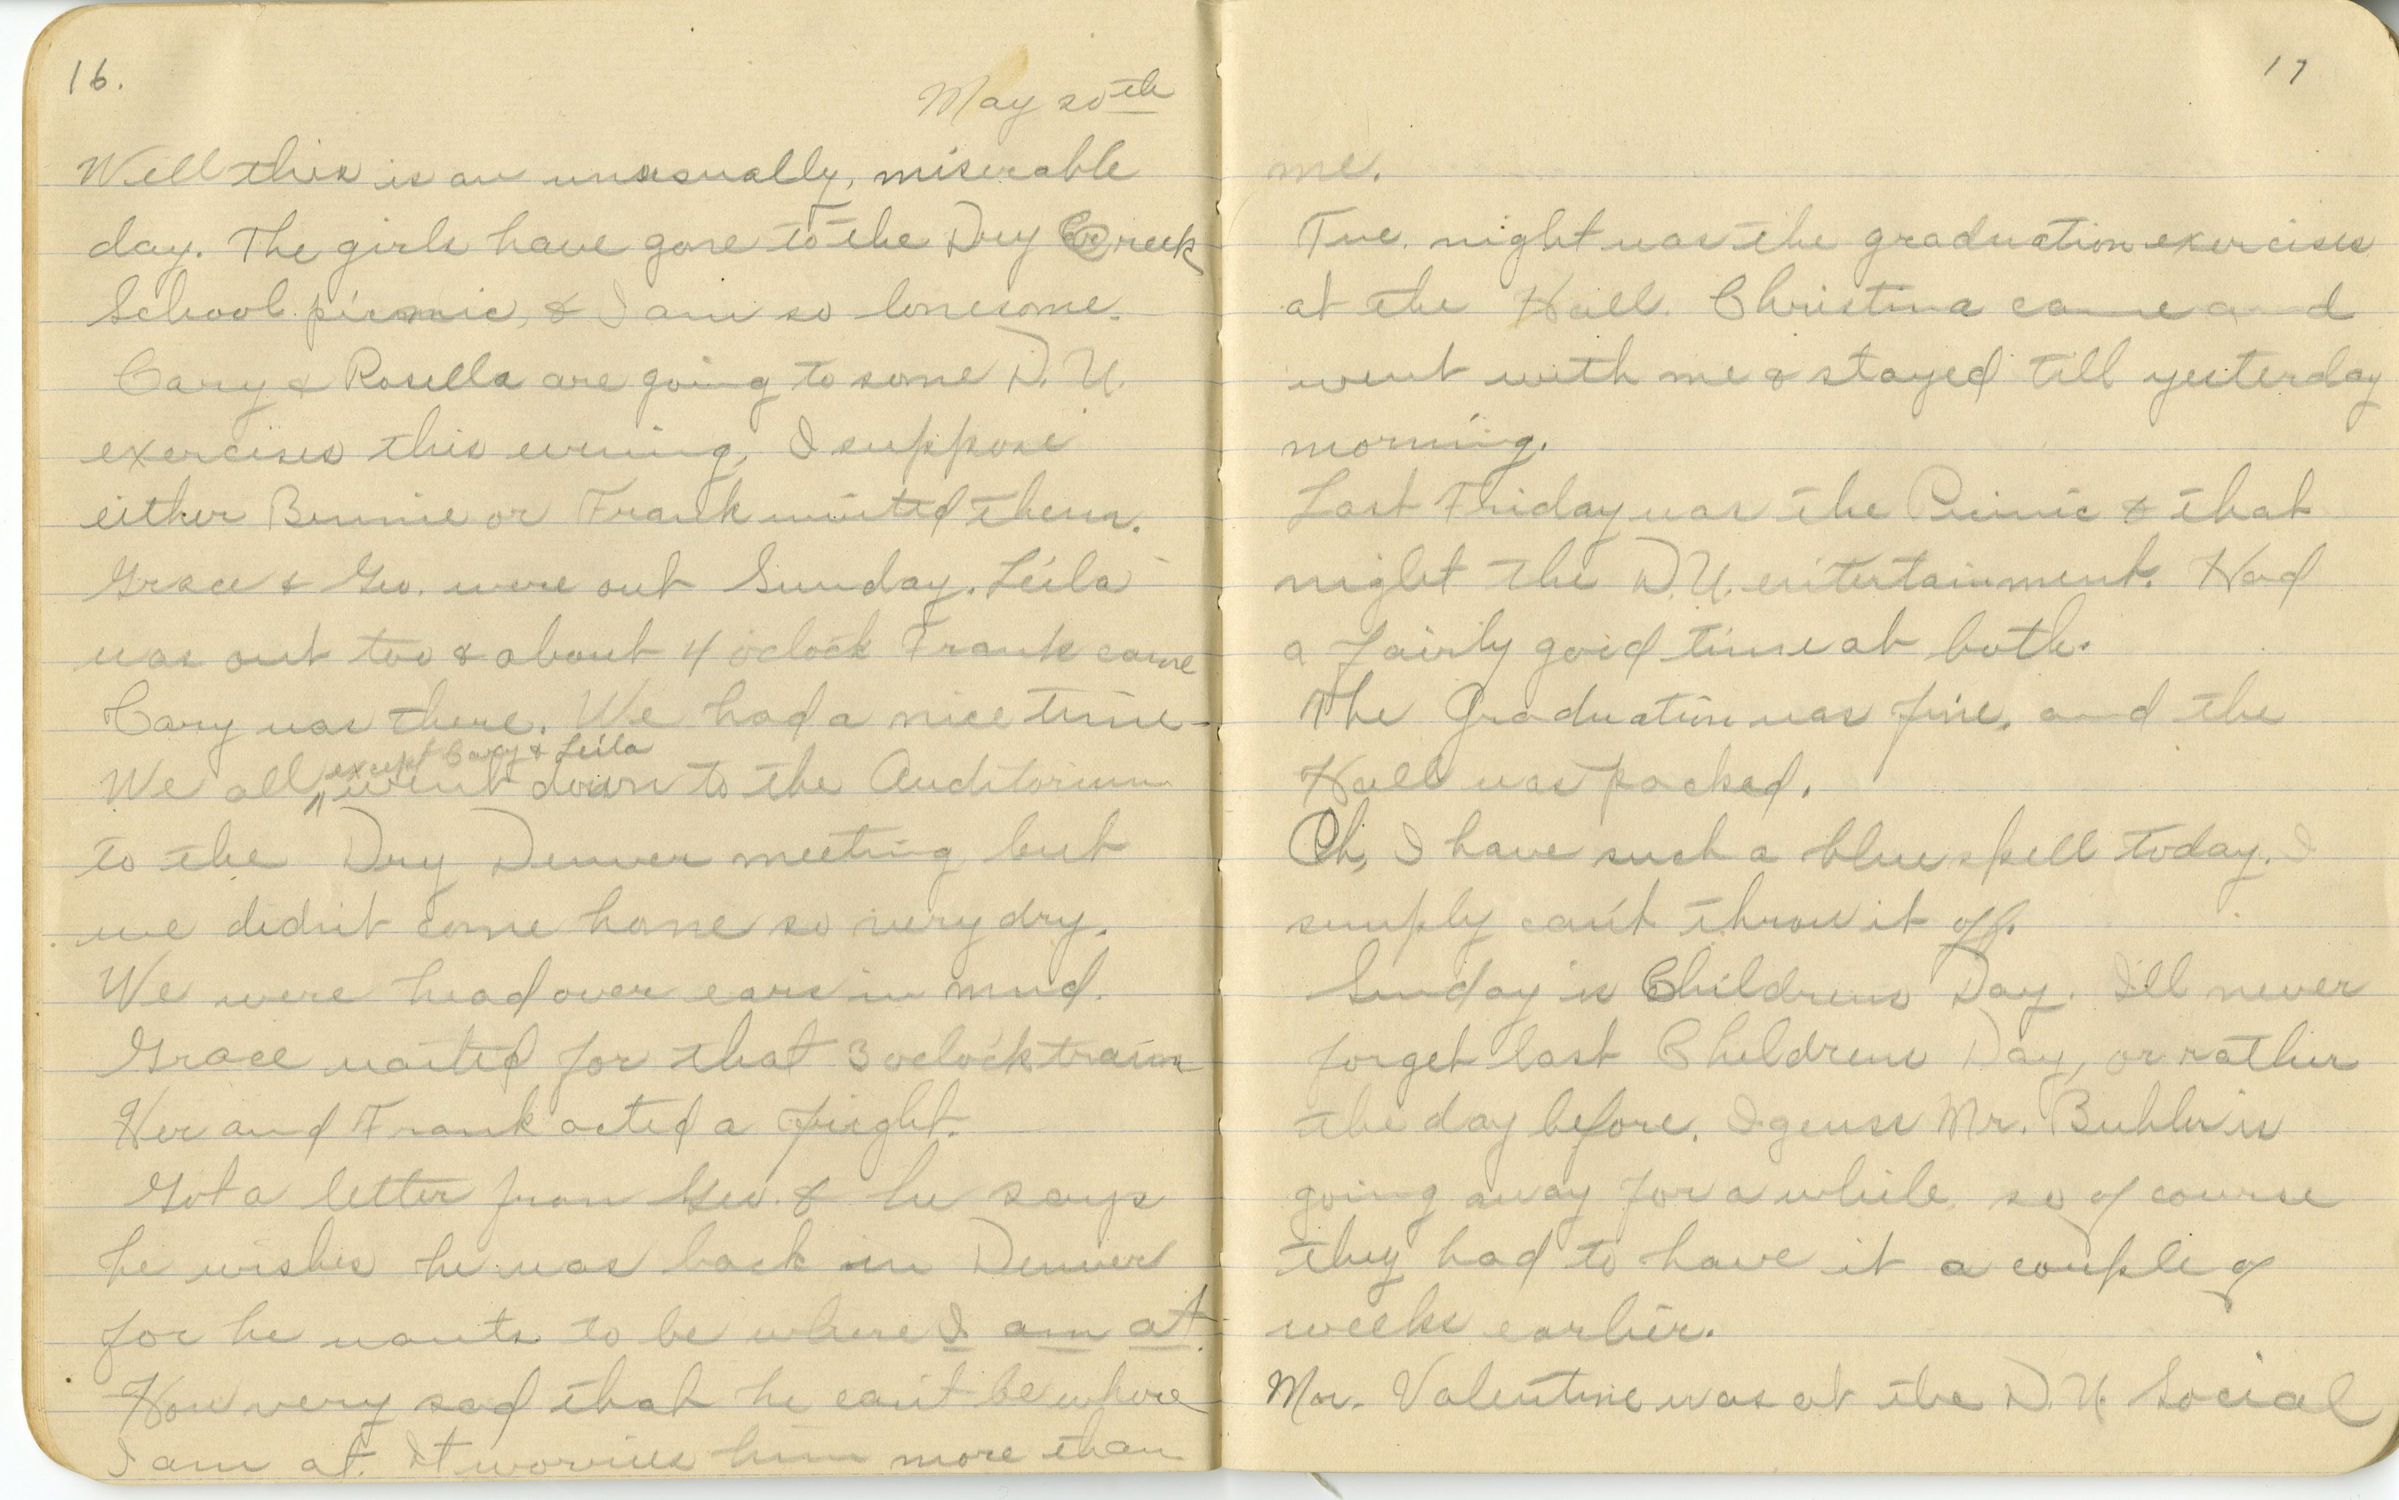 16.
May 20th
Well this is an unusually, miserable
day. The girls have gone to the Dry Creek
School picnic, & I am so lonesome.
Cary & Rosella are going to some D. U.
exercises this evening, I suppose
either Bennie or Frank invited them.
Grace & Geo. were out Sunday. Leila
was out too & about 4 oclock Frank came
Cary was there. We had a nice time—
We all except Cary & Leila went down to the Auditorium
to the Dry Denver meeting but
we didn't come home so very dry.
We were head over ears in mud.
Grace waited for that 3 oclock train
Her and Frank acted a fright.
Got a letter from Geo. & he says
he wishes he was back in Denver
for he wants to be where I am at.
How very sad that he can't be where
I am at. It worries him more than
17
me.
Tue. night was the graduation exercises
at the Hall. Christina came and
went with me & stayed till yesterday
morning.
Last Friday was the Picnic & that
night the D. U. entertainment. Had
a fairly good time at both.
The Graduation was fine, and the
Hall was packed.
Oh, I have such a blue spell today. I
simply can't throw it off.
Sunday is Childrens Day. I'll never
forget last Childrens Day, or rather
the day before. I guess Mr. Buhler is
going away for a while, so of course
they had to have it a couple of
weeks earlier.
Mr. Valentine was at the D. U. Social